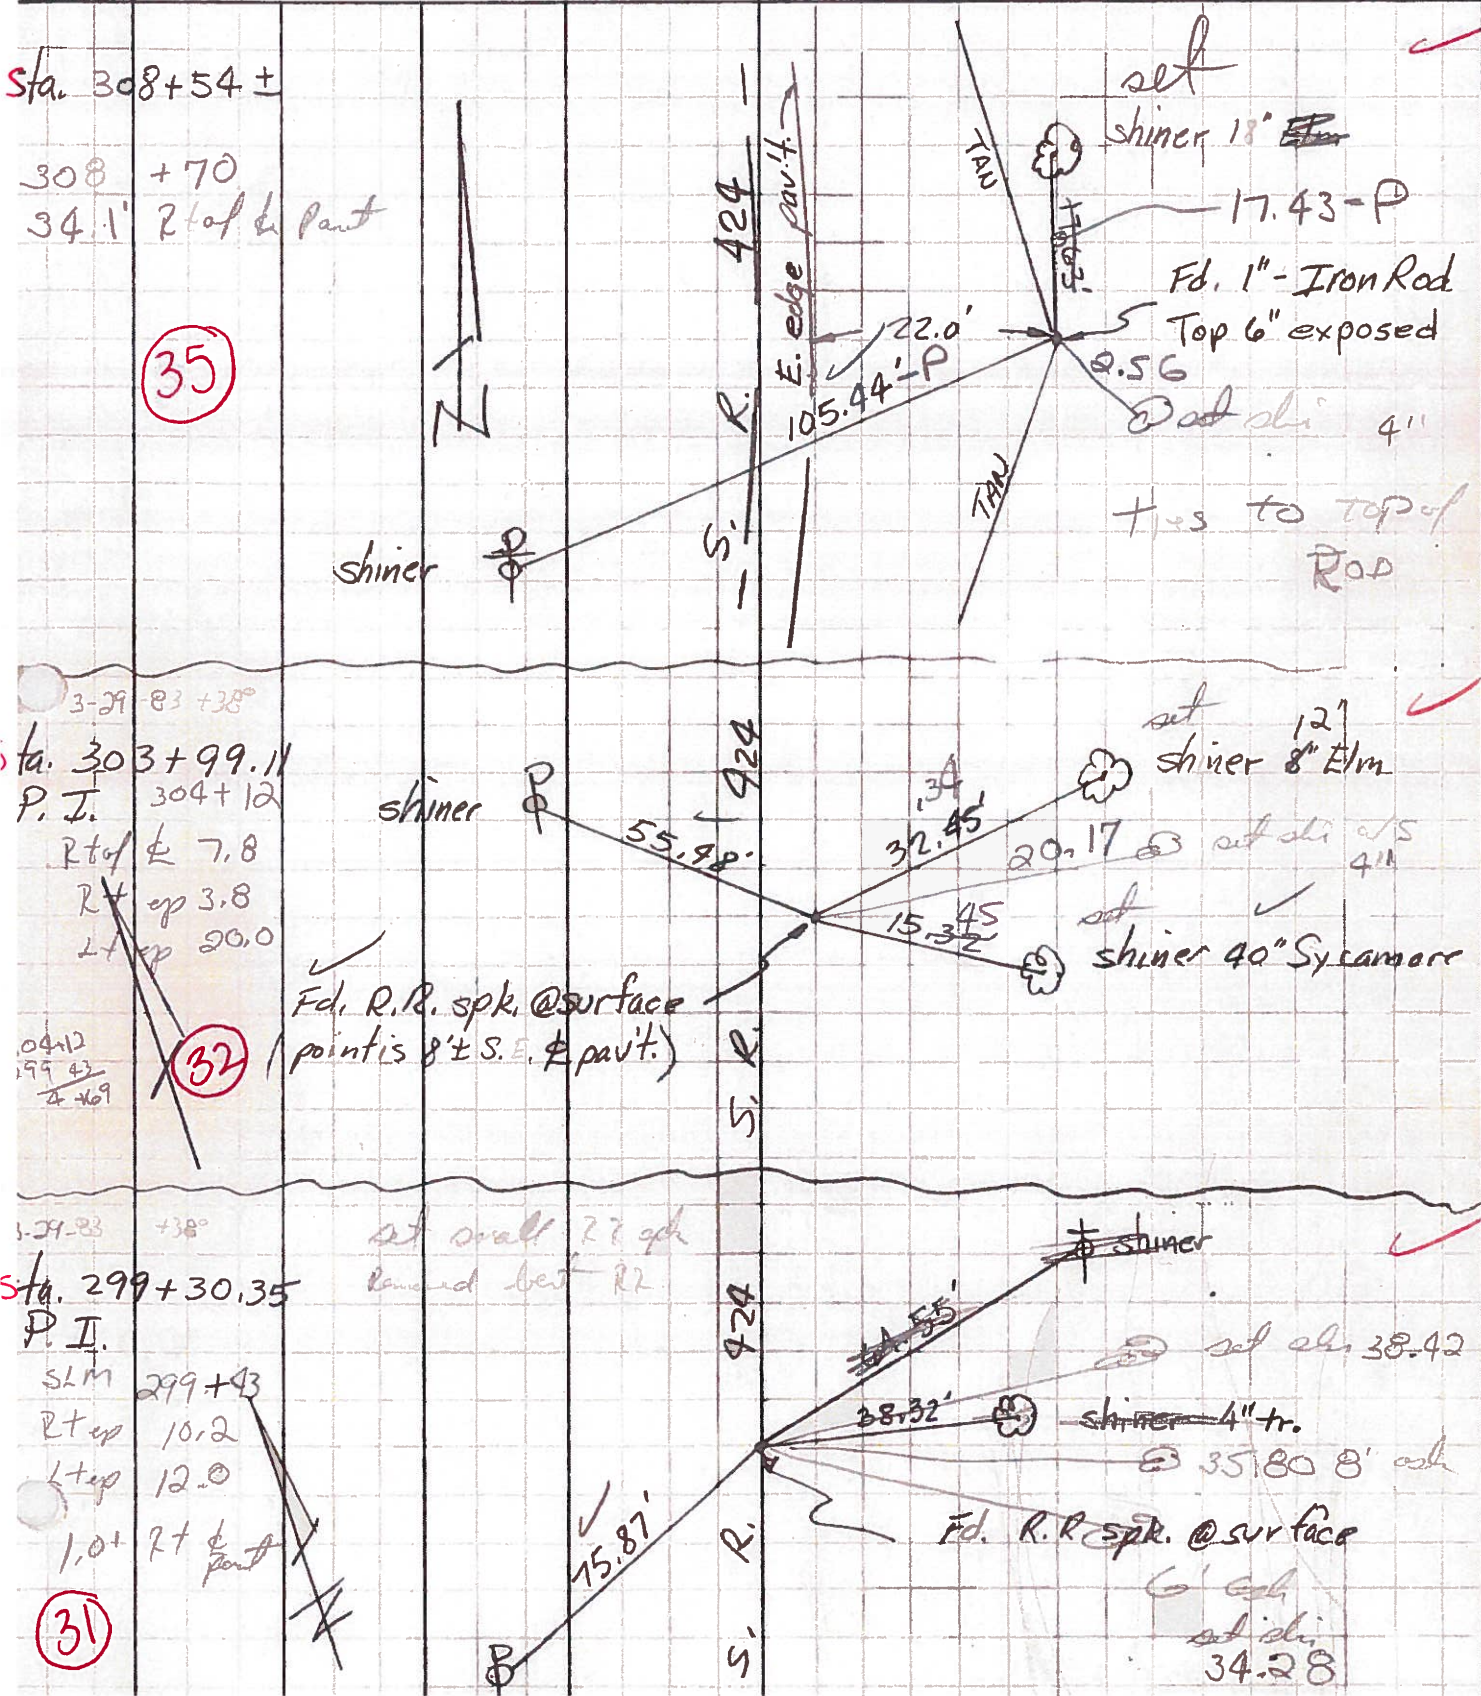 Sta. 308+54 ±
308 +70
34.1' Rt of ℄ Pavt
35
N
S. R. 424
E. edge pav't.
TAN
TAN
set
shiner 18" Elm
17.43-P
Fd. 1"-Iron Rod
Top 6" exposed
22.0'
105.44'-P
2.56
set shi 4"
shiner
Ties to top of
Rod
3-29-83 +38°
Sta. 303+99.11
P.I. 304+12
Rt of ℄ 7.8
Rt ep 3.8
Lt ep 20.0
32
shiner
55.98'
S. R. 424
.34
32.45'
set 12"
shiner 8" Elm
20.17
set shi 4"
45
15.32
set
shiner 40" Sycamore
Fd. R.R. spk. @ surface
(point is 8'± S.E. ℄ pav't.)
3-29-83 +38°
set small RR spk
Removed bent RR
Sta. 299+30.35
P.I.
SLM 299+43
Rt ep 10.2
Lt ep 12.0
1.0± Rt ℄ Pavt
31
S. R. 424
shiner
set shi 38.42
38.32'
shiner 4" tr.
35.80 8" ash
Fd. R.R. spk. @ surface
75.87'
6" ash
set shi
34.28